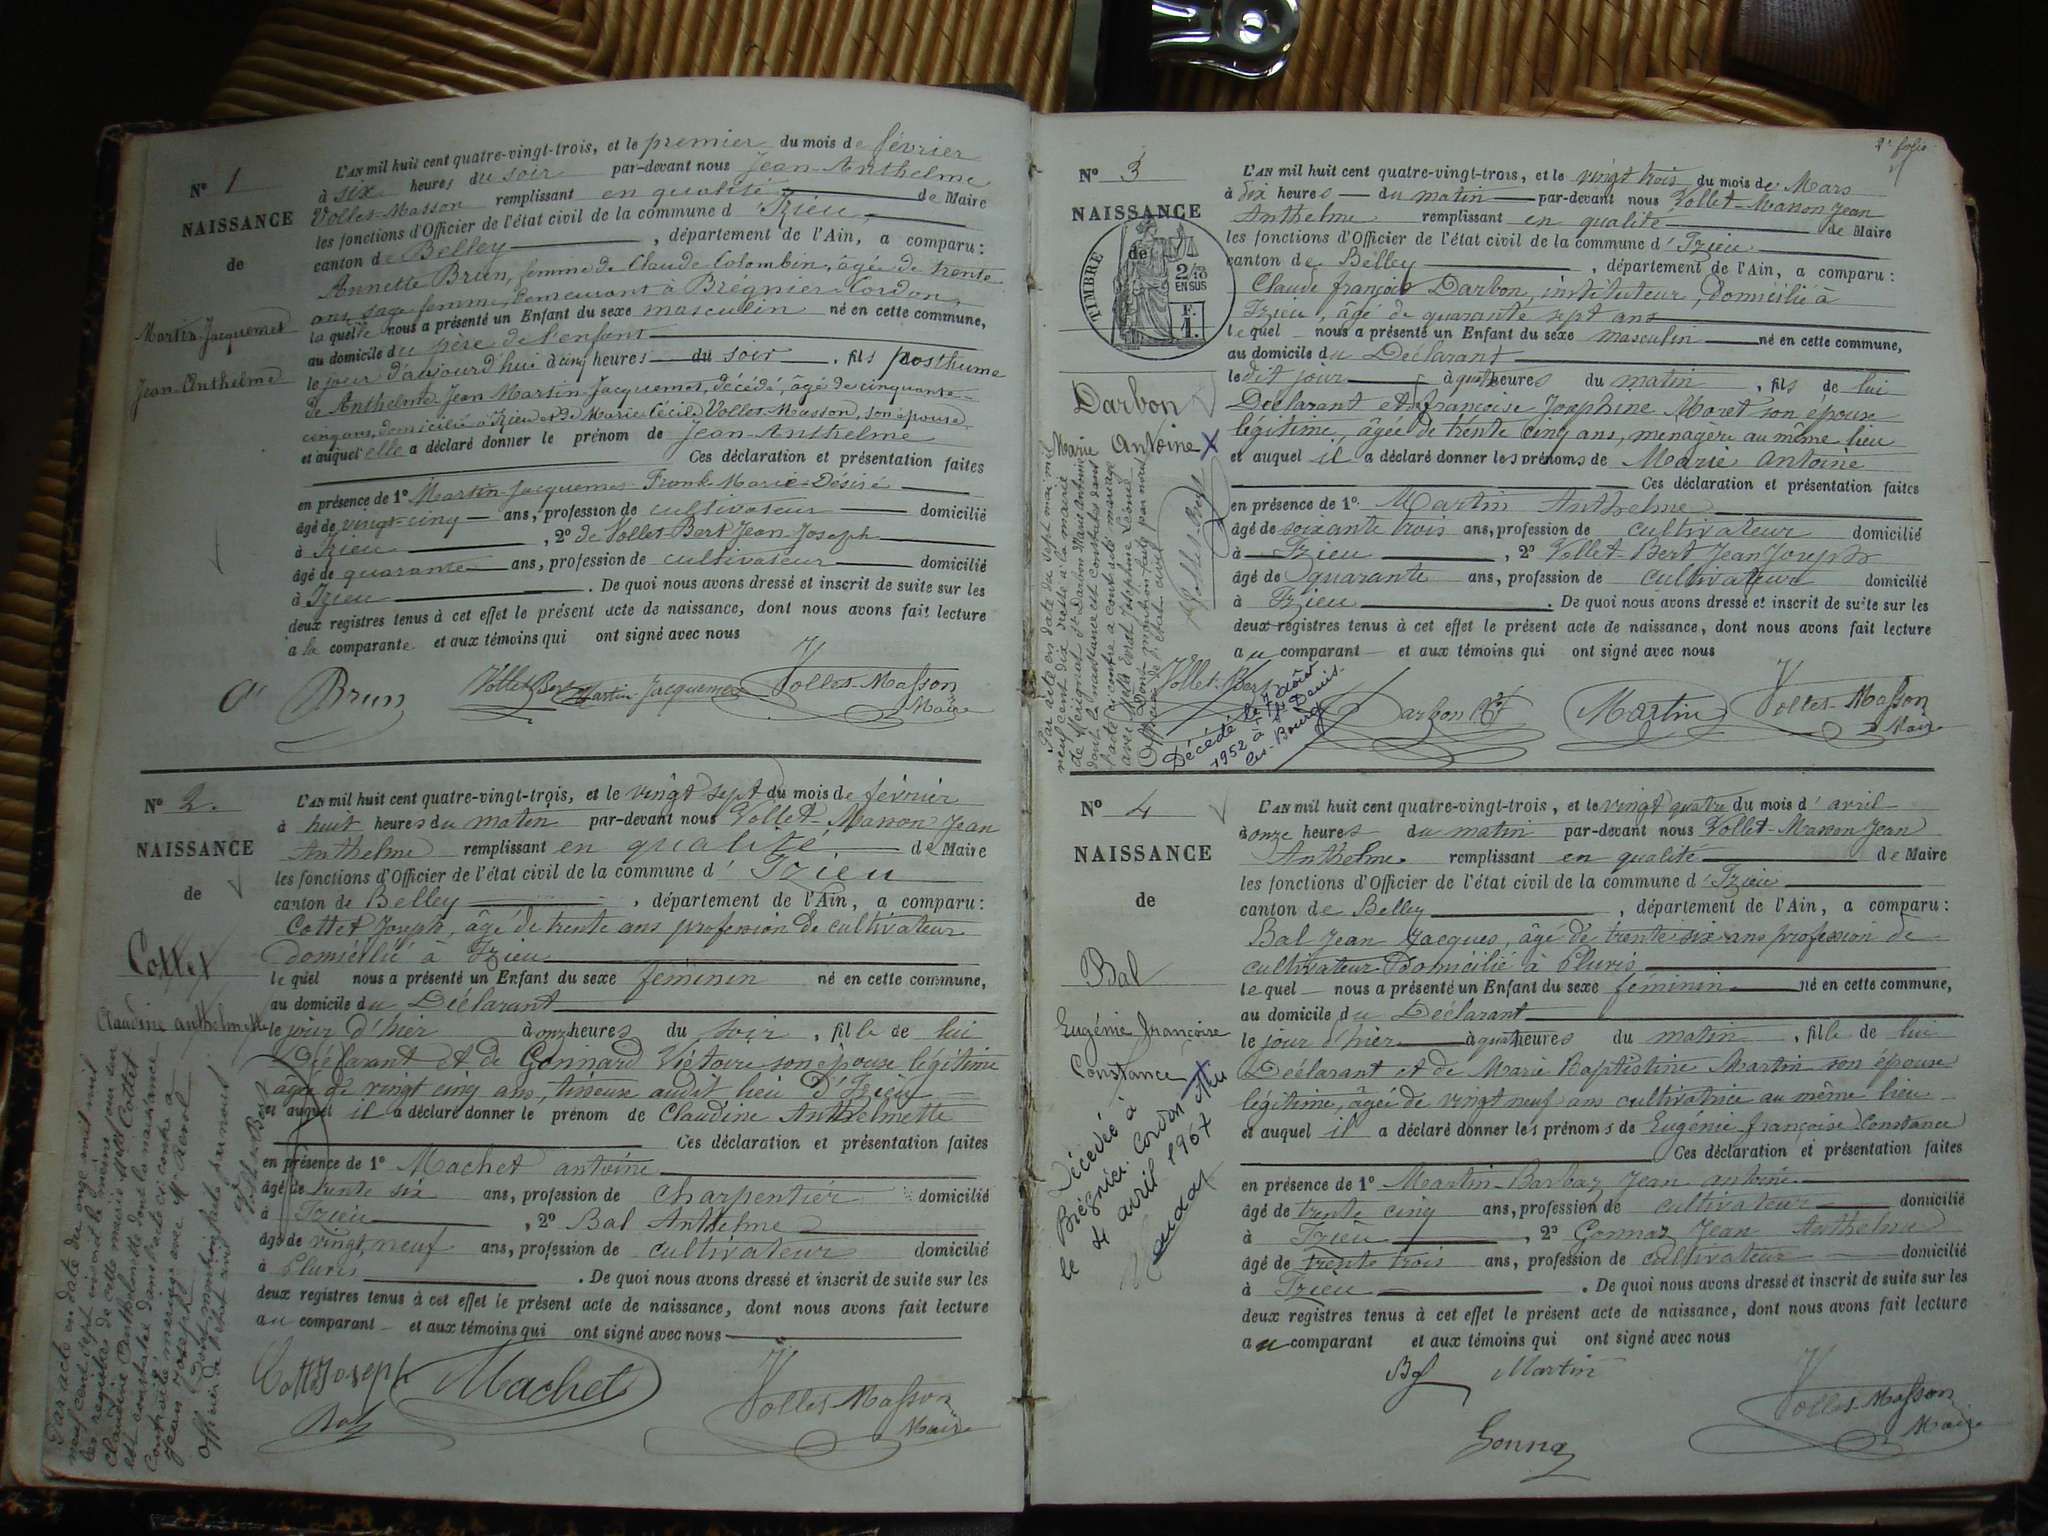 Nº 1
NAISSANCE
de
Martin-Jacquemet
Jean-Anthelme
L'AN mil huit cent quatre-vingt-trois, et le premier du mois de février
à six heures du soir par-devant nous Jean-Anthelme
Vollet-Masson remplissant en qualité de Maire
les fonctions d'Officier de l'état civil de la commune d'Izieu
canton de Belley, département de l'Ain, a comparu :
Annette Brun, femme de Claude Colombin, âgée de trente
ans, sage femme, demeurant à Brégnier-Cordon,
laquelle nous a présenté un Enfant du sexe masculin né en cette commune,
au domicile du père de l'enfant
le jour d'aujourd'hui à cinq heures du soir, fils posthume
de Anthelme Jean Martin-Jacquemet, décédé, âgé de cinquante-
cinq ans, domicilié à Izieu et de Marie Cécile Vollet-Masson, son épouse
et auquel elle a déclaré donner le prénom de Jean-Anthelme
Ces déclaration et présentation faites
en présence de 1º Martin-Jacquemet Frank-Marie-Désiré
âgé de vingt-cinq ans, profession de cultivateur domicilié
à Izieu, 2º de Vollet-Bert Jean Joseph
âgé de quarante ans, profession de cultivateur domicilié
à Izieu. De quoi nous avons dressé et inscrit de suite sur les
deux registres tenus à cet effet le présent acte de naissance, dont nous avons fait lecture
a la comparante et aux témoins qui ont signé avec nous
Brun Vollet-Bert Martin-Jacquemet Vollet-Masson
Maire
Nº 2.
NAISSANCE
de
Cottet
Claudine anthelmette
L'AN mil huit cent quatre-vingt-trois, et le vingt sept du mois de février
à huit heures du matin par-devant nous Vollet-Masson Jean
Anthelme remplissant en qualité de Maire
les fonctions d'Officier de l'état civil de la commune d'Izieu
canton de Belley, département de l'Ain, a comparu :
Cottet Joseph, âgé de trente ans profession de cultivateur
domicilié à Izieu
lequel nous a présenté un Enfant du sexe féminin né en cette commune,
au domicile du Déclarant
le jour d'hier à onze heures du soir, fille de lui
Déclarant et de Gonnard Victoire son épouse légitime
âgée de vingt cinq ans, tisseuse audit lieu d'Izieu
et auquel il a déclaré donner le prénom de Claudine Anthelmette
Ces déclaration et présentation faites
en présence de 1º Machet antoine
âgé de trente six ans, profession de charpentier domicilié
à Izieu, 2º Bal Anthelme
âgé de vingt neuf ans, profession de cultivateur domicilié
à Pluris. De quoi nous avons dressé et inscrit de suite sur les
deux registres tenus à cet effet le présent acte de naissance, dont nous avons fait lecture
au comparant et aux témoins qui ont signé avec nous
Cottet Joseph Machet Vollet-Masson
Bal Maire
Par acte en date du onze mai mil
neuf cent sept inscrit le même jour sur
les registres de cette mairie Melle Cottet
Claudine Anthelmette dont la naissance
est constatée dans l'acte ci-contre a
contracté mariage avec Mr
Jean Joseph
Dont mention faite par nous
Officier de l'état civil
Vollet-Bert
2e folio
Nº 3
NAISSANCE
de
TIMBRE
2/10
EN SUS
F.
1.
Darbon
Marie Antoine
L'AN mil huit cent quatre-vingt-trois, et le vingt trois du mois de Mars
à dix heures du matin par-devant nous Vollet-Masson Jean
Anthelme remplissant en qualité de Maire
les fonctions d'Officier de l'état civil de la commune d'Izieu
canton de Belley, département de l'Ain, a comparu :
Claude françois Darbon, instituteur, domicilié à
Izieu, âgé de quarante sept ans
lequel nous a présenté un Enfant du sexe masculin né en cette commune,
au domicile du Déclarant
ledit jour à quatre heures du matin, fils de lui
Déclarant et de françoise Joséphine Moret son épouse
légitime, âgée de trente cinq ans, ménagère au même lieu
et auquel il a déclaré donner les prénoms de Marie Antoine
Ces déclaration et présentation faites
en présence de 1º Martin Anthelme
âgé de soixante trois ans, profession de cultivateur domicilié
à Izieu, 2º Vollet-Bert Jean Joseph
âgé de quarante ans, profession de cultivateur domicilié
à Izieu. De quoi nous avons dressé et inscrit de suite sur les
deux registres tenus à cet effet le présent acte de naissance, dont nous avons fait lecture
au comparant et aux témoins qui ont signé avec nous
Vollet-Bert Darbon Martin Vollet-Masson
Maire
Par acte en date du sept mai mil
neuf cent dix reçu à la mairie
de Mérignat Sr Darbon Marie Antoine
dont la naissance est constatée dans
l'acte ci-contre a contracté mariage
avec Melle Joséphine Léonie
Dont mention faite par nous
Officier de l'état civil
Vollet-Bert
Décédé le 7 août
1952 à St Denis-
les-Bourg
Nº 4
NAISSANCE
de
Bal
Eugénie Françoise
Constance
L'AN mil huit cent quatre-vingt-trois, et le vingt quatre du mois d'avril
à onze heures du matin par-devant nous Vollet-Masson Jean
Anthelme remplissant en qualité de Maire
les fonctions d'Officier de l'état civil de la commune d'Izieu
canton de Belley, département de l'Ain, a comparu :
Bal Jean Jacques, âgé de trente six ans profession de
cultivateur domicilié à Pluris
lequel nous a présenté un Enfant du sexe féminin né en cette commune,
au domicile du Déclarant
le jour d'hier à quatre heures du matin, fille de lui
Déclarant et de Marie Baptistine Martin son épouse
légitime, âgée de vingt neuf ans cultivatrice au même lieu
et auquel il a déclaré donner les prénoms de Eugénie françoise Constance
Ces déclaration et présentation faites
en présence de 1º Martin-Barbaz Jean antoine
âgé de trente cinq ans, profession de cultivateur domicilié
à Izieu, 2º Gonnaz Jean Anthelme
âgé de trente trois ans, profession de cultivateur domicilié
à Izieu. De quoi nous avons dressé et inscrit de suite sur les
deux registres tenus à cet effet le présent acte de naissance, dont nous avons fait lecture
au comparant et aux témoins qui ont signé avec nous
Bal Martin
Vollet-Masson
Maire
Gonnaz
Décédée à
Brégnier-Cordon
le 4 avril 1967